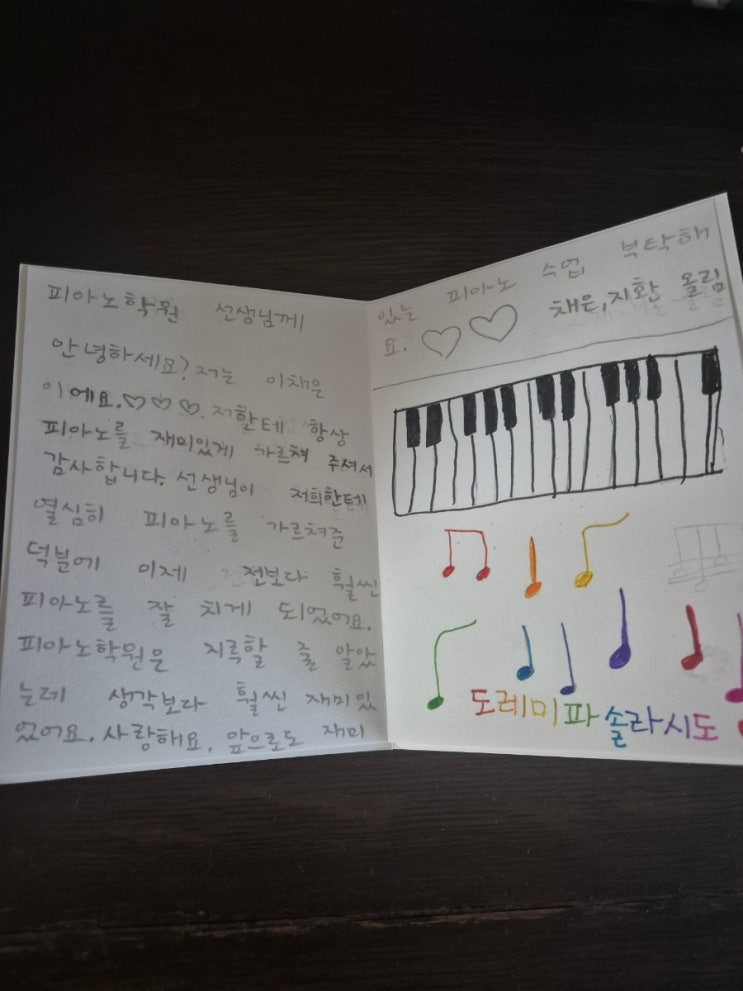 피아노학원 선생님께
안녕하세요? 저는 이채은
이에요.♡♡♡. 저한테 항상
피아노를 재미있게 가르쳐 주져서
감사합니다. 선생님이 저희한테
열심히 피아노를 가르쳐준
덕분에 이제 전보다 훨씬
피아노를 잘 치게 되었어요.
피아노학원은 지루할 줄 알았
는데 생각보다 훨씬 재미있
었어요. 사랑해요, 앞으로도 재미
있는 피아노 수업 부탁해
요. ♡♡ 채은,지환 올림
도레미파솔라시도